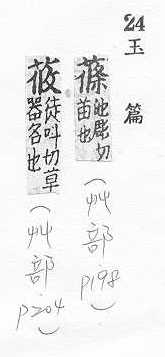 24
玉篇
蓧 他彫切
苗也
(艸部 p198)
莜 徒叫切草
器名也
(艸部 p204)